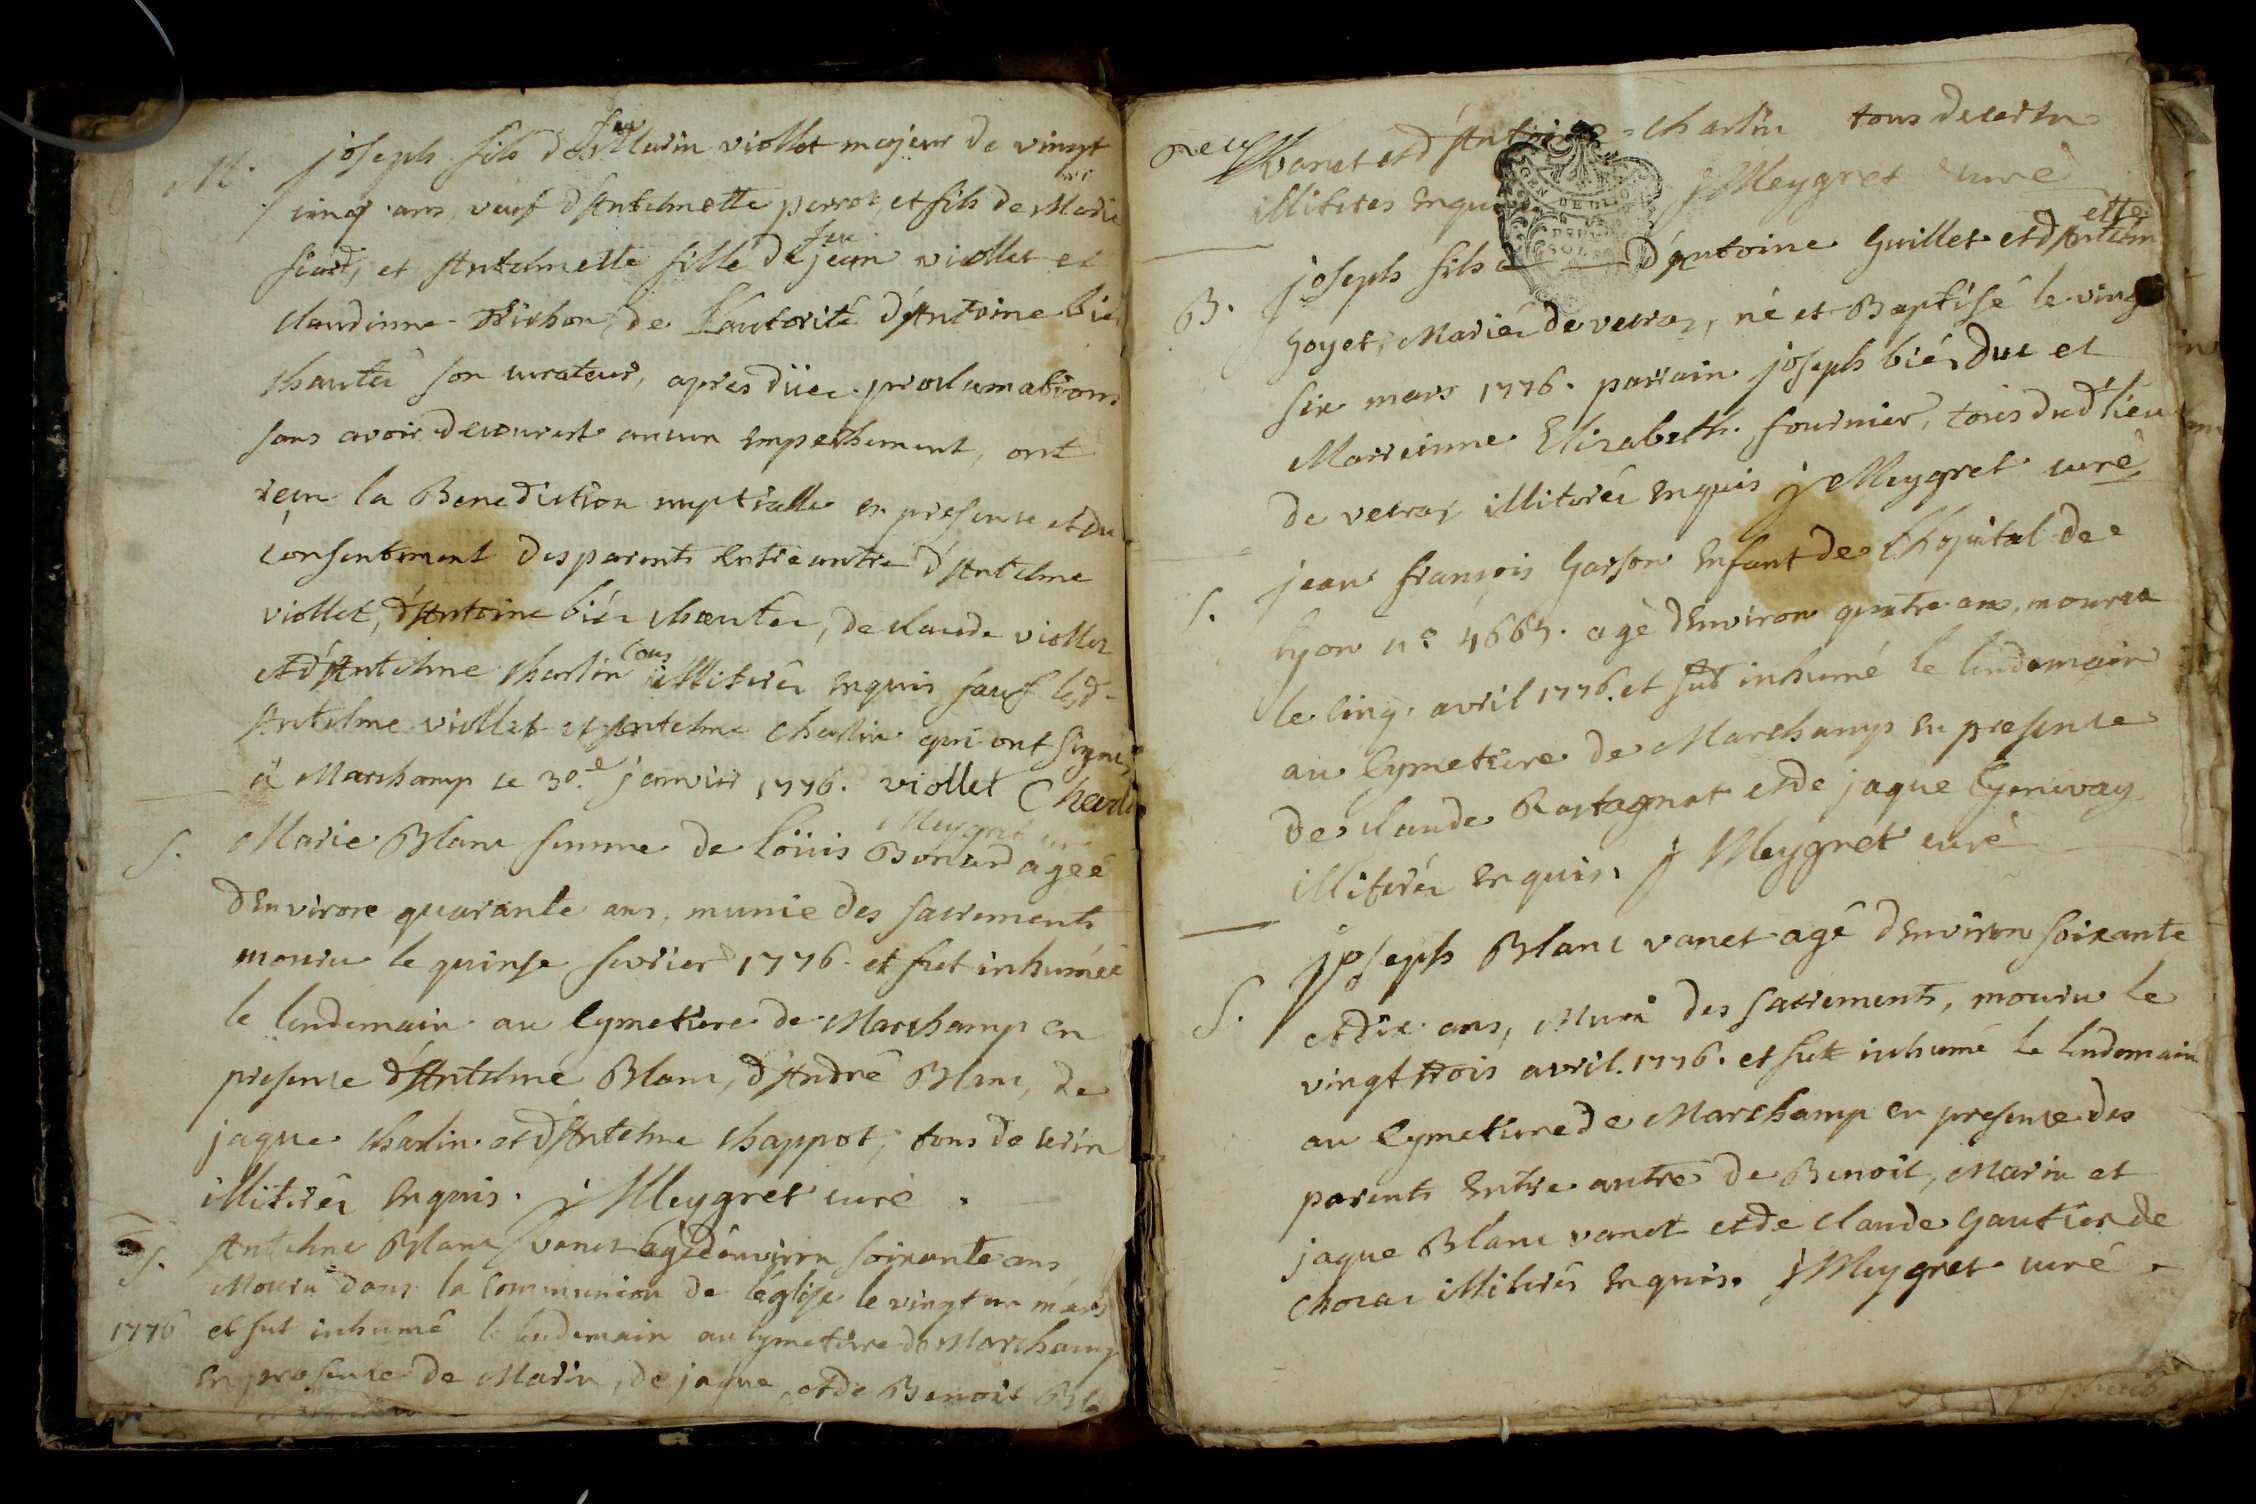 M. joseph fils de feu Marin viollet majeur de vingt
cinq ans, veuf d'Antelmette perrot, et fils de Marie
siard, et Antelmette fille de feu jean viollet et
claudinne Trichon, de l'autorité d'Antoine biés
chautée son curateur, apres düee proclamations
sans avoir decouvert aucun empechement, ont
reçu la Benediction nuptialle en presence et du
consentement des parents entreautre d'Antelme
viollet, d'Antoine biés chautée, de claude viollet
et d'Antelme charlin tous illiterés enquis sauf led.
Antelme viollet et Antelme charlin qui ont signé
à Marchamp ce 30.e janvier 1776. viollet Charlin
Meygret curé
S. Marie Blanc femme de Loüis Bonard ageé
d'Environ quarante ans, munie des sacrements
mouru le quinse fevrier 1776. et fut inhumée
le lendemain au cymetiere de Marchamp en
presence d'Antelme Blanc, d'André Blanc, de
jaque charlin et d'Antelme chappot, tous de cerin
illiterés enquis. j Meygret curé.
S. Antelme Blanc vanet agé d'environ soixante ans
Mouru dans la communion de l'église le vingt un mars
1776 et fut inhumé le lendemain au cymetiere de Marchamp
en presence de Marin, de jaque, et de Benoit Bla
vanet et d'Antoine charlin tous de cerin
illiteres enquis j Meygret curé
B. joseph fils d'Antoine Guillet et d'Antelmette
Goyet, Mariés de veiraz, né et Baptisé le vingt
six mars 1776. parrain joseph biés duc et
Marreinne Elizabeth fournier, tous dud. lieu
de veiraz illiterés enquis j Meygret curé
S. jean françois Garson enfant de l'hopital de
lyon n.o 4665. agé d'Environ quatre ans, mouru
le cinq avril 1776. et fut inhumé le lendemain
au cymetiere de Marchamp en presence
de claude Rostagnat et de jaque
illiterés enquis. j Meygret curé
S. joseph Blanc vanet agé d'Environ soixante
et dix ans, Muni des sacrements, mouru le
vingt trois avril. 1776. et fut inhumé le lendemain
au cymetiere de Marchamp en presence des
parents entre autre de Benoit, Marin et
jaque Blanc vanet et de claude Gautier de
Choraz illiterés enquis. j Meygret curé.